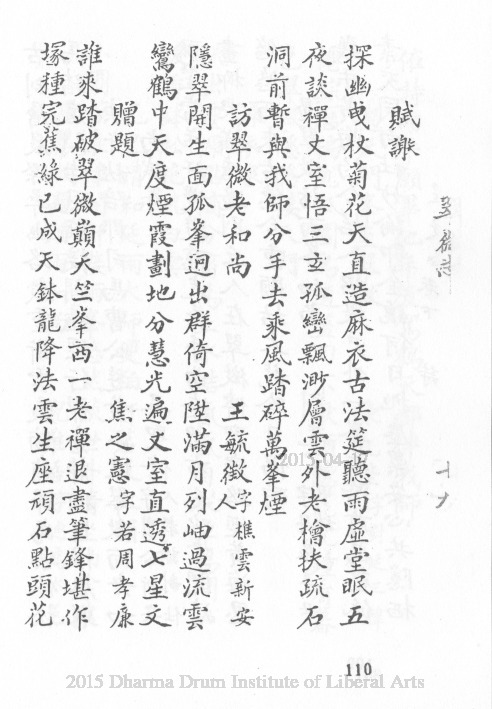 賦謝
探幽曳杖菊花天直造麻衣古法筵聽雨虛堂眠五
夜談禪丈室悟三玄孤巒飄渺層雲外老檜扶疏石
洞前暫與我師分手去乘風踏碎萬峯煙
訪翠微老和尚 王毓徵字樵雲新安人
隱翠開生面孤峯迥出群倚空陞滿月列岫過流雲
鸞鶴中天度煙霞劃地分慧光遍丈室直透七星文
贈題 焦之憲字若周孝廉
誰來踏破翠微巔天竺峯西一老禪退盡筆鋒堪作
塚種完蕉綠已成天鉢龍降法雲生座頑石點頭花
十九
110
2015-04-17
2015 Dharma Drum Institute of Liberal Arts